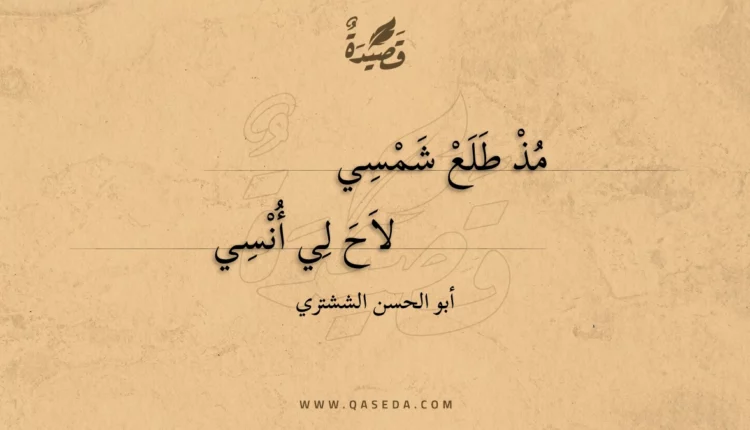 قَصِيدَةٌ
مُذْ طَلَعْ شَمْسِي
لاَحَ لِي أُنْسِي
أبو الحسن الششتري
WWW.QASEDA.COM